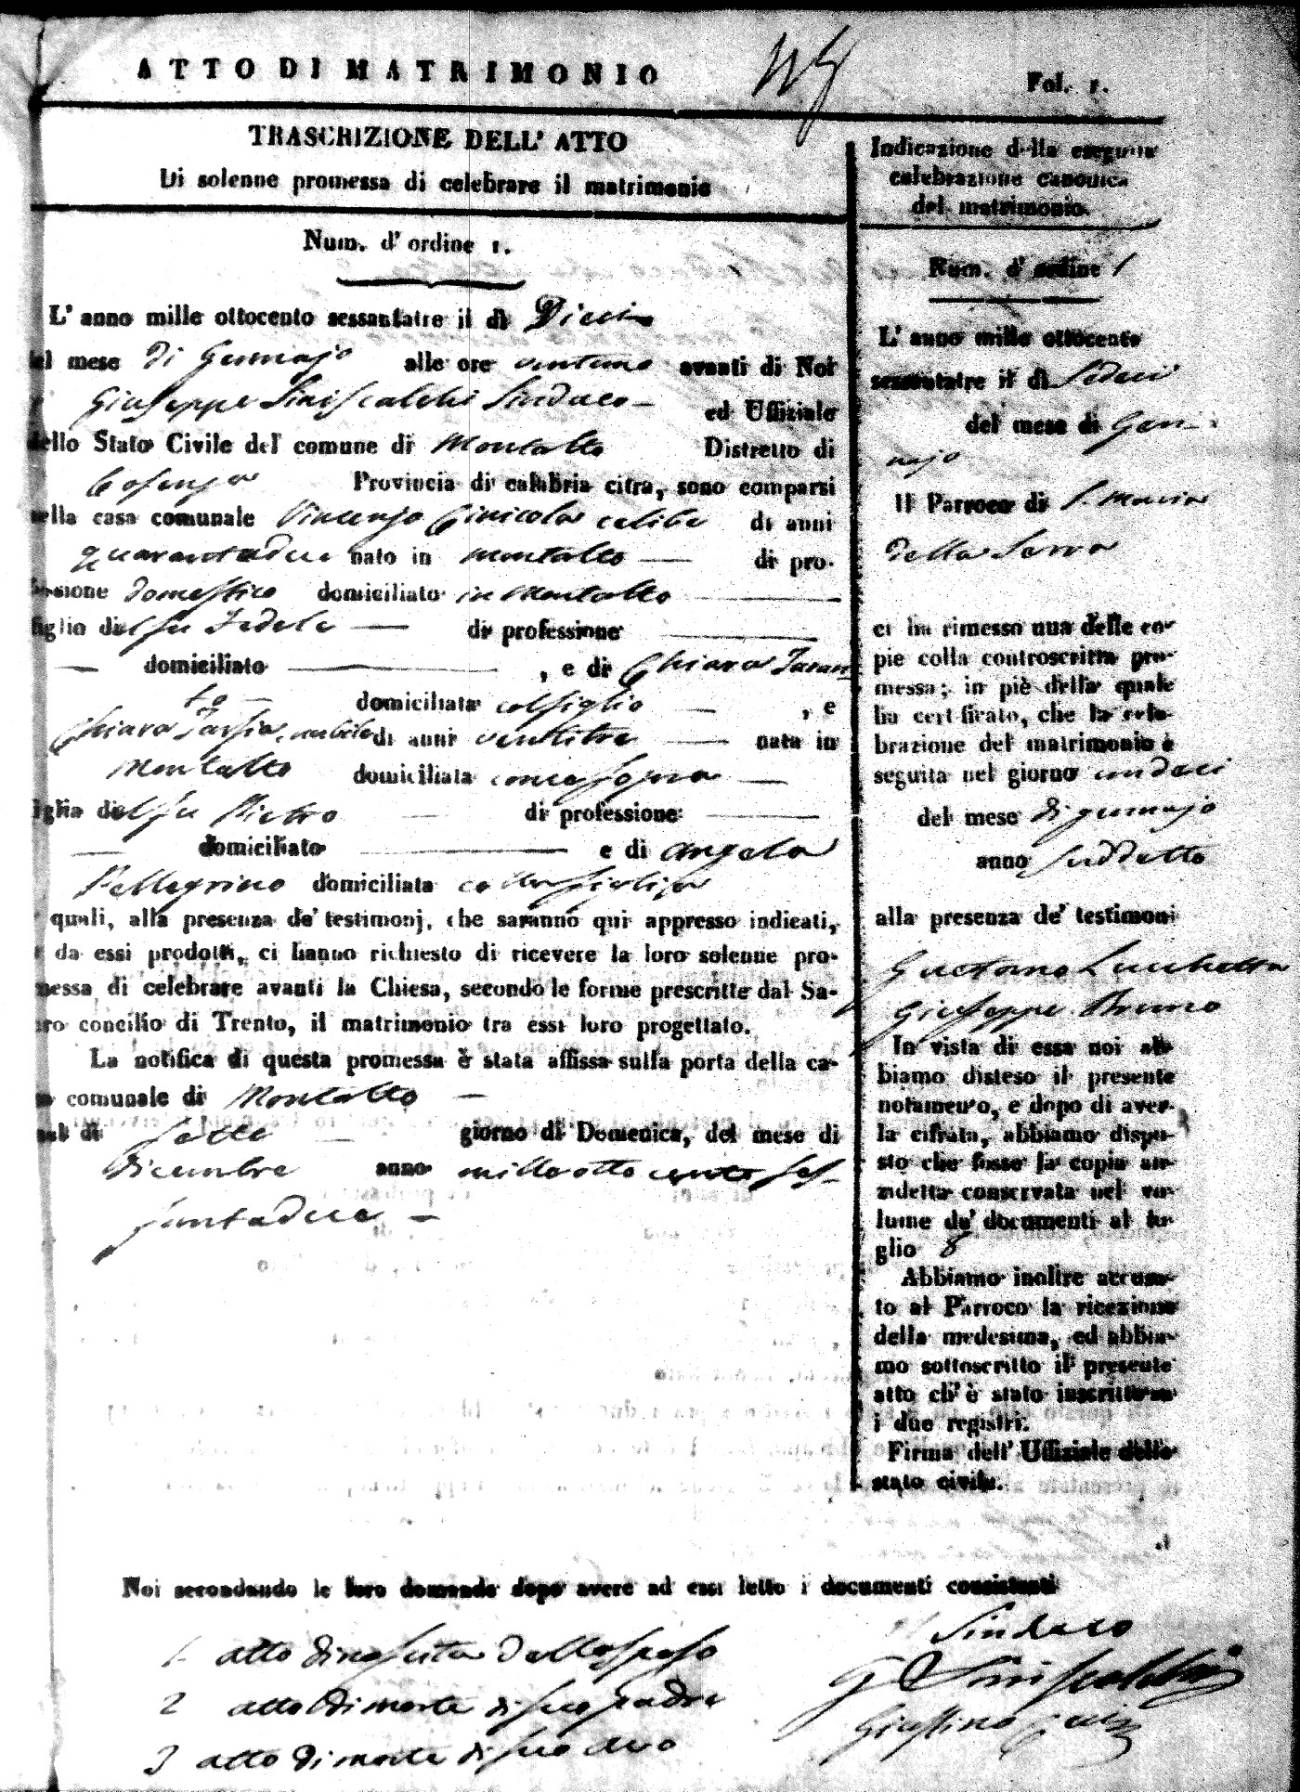 ATTO DI MATRIMONIO
Fol. 1.
TRASCRIZIONE DELL' ATTO
Di solenne promessa di celebrare il matrimonio
Num. d' ordine 1.
L' anno mille ottocento sessantatre il dì Dieci
del mese di Gennajo alle ore ventuno avanti di Noi
Giuseppe Siniscalchi Sindaco ed Uffiziale
dello Stato Civile del comune di Montalto Distretto di
Cosenza Provincia di calabria citra, sono comparsi
nella casa comunale Vincenzo celibe di anni
quarantadue nato in Montalto — di pro-
fessione domestico domiciliato in Montalto
figlio del fu Fedele — di professione
— domiciliato — , e di Chiara Taran
to — domiciliata col figlio — , e
Chiara Tarsia nubile di anni ventitre — nata in
Montalto domiciliata come sopra —
figlia del fu Pietro — di professione —
— domiciliato — e di Angela
Pellegrino domiciliata colla figlia
quali, alla presenza de' testimonj, che saranno qui appresso indicati,
e da essi prodotti, ci hanno richiesto di ricevere la loro solenne pro-
messa di celebrare avanti la Chiesa, secondo le forme prescritte dal Sa-
cro concilio di Trento, il matrimonio tra essi loro progettato.
La notifica di questa promessa è stata affissa sulla porta della ca-
sa comunale di Montalto —
nel dì sette — giorno di Domenica, del mese di
Dicembre anno mille otto cento ses-
santadue —
Noi secondando le loro domande dopo avere ad essi letto i documenti consistenti
1 atto di nascita dello sposo
2 atto di morte di suo padre
3 atto di morte di suo avo
Indicazione della eseguita
celebrazione canonica
del matrimonio.
Num. d' ordine 1
L' anno mille ottocento
sessantatre il dì Sedeci
del mese di Gen-
najo
Il Parroco di S. Maria
della Serra
ci ha rimesso una delle co-
pie colla controscritta pro-
messa; in piè della quale
ha certificato, che la cele-
brazione del matrimonio è
seguita nel giorno undeci
del mese di gennajo
anno suddetto
alla presenza de' testimoni
Gaetano Lucchetta
Giuseppe Bruno
In vista di essa noi ab-
biamo disteso il presente
notamento, e dopo di aver-
la cifrata, abbiamo dispo-
sto che fosse la copia an-
zidetta conservata nel vo-
lume de' documenti al fo-
glio 8
Abbiamo inoltre accusa-
to al Parroco la ricezione
della medesima, ed abbia-
mo sottoscritto il presente
atto ch' è stato inscritto su
i due registri.
Firma dell' Uffiziale dello
stato civile.
Il Sindaco
G Siniscalchi